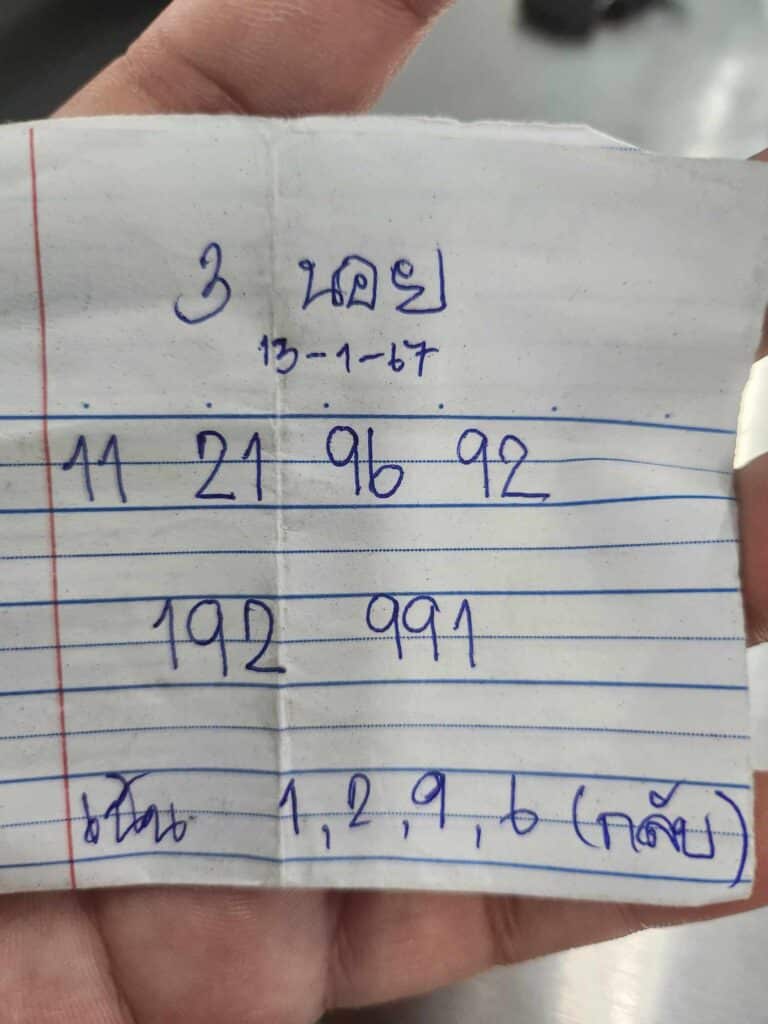 3 นอย
13-1-67
11 21 96 92
192 991
เน้น 1,2,9,6 (กลับ)